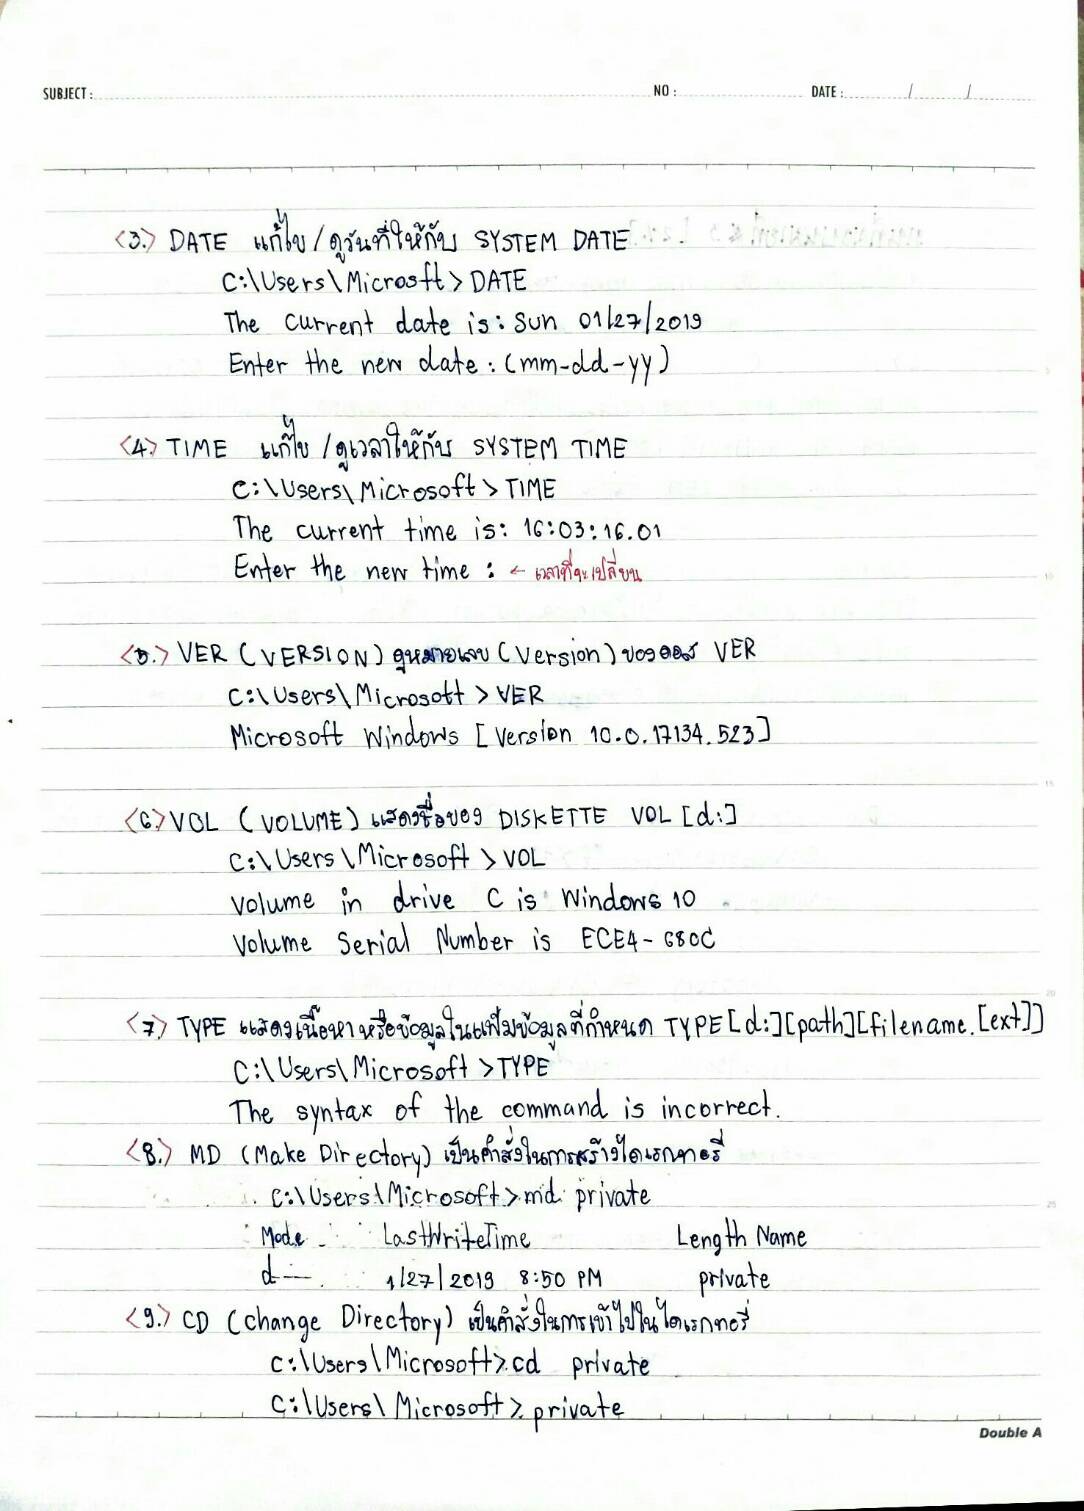 SUBJECT : NO : DATE : / /
<3.> DATE แก้ไข / ดูวันที่ให้กับ SYSTEM DATE
C:\Users\Microsft> DATE
The current date is: Sun 01/27/2019
Enter the new date : (mm-dd-yy)
<4.> TIME แก้ไข / ดูเวลาให้กับ SYSTEM TIME
C:\Users\Microsoft> TIME
The current time is: 16:03:16.01
Enter the new time : ← เวลาที่จะเปลี่ยน
<5.> VER (VERSION) ดูหมายเลข (Version) ของดอส VER
C:\Users\Microsoft > VER
Microsoft Windows [Version 10.0.17134.523]
<6> VOL (VOLUME) แสดงชื่อของ DISKETTE VOL [d:]
C:\Users\Microsoft > VOL
Volume in drive C is Windows 10
Volume Serial Number is ECE4-680C
<7> TYPE แสดงเนื้อหาหรือข้อมูลในแฟ้มข้อมูลที่กำหนด TYPE[d:][path][filename.[ext]]
C:\Users\Microsoft >TYPE
The syntax of the command is incorrect.
<8.> MD (Make Directory) เป็นคำสั่งในการสร้างไดเรกทอรี่
C:\Users\Microsoft> md private
Mode LastWriteTime Length Name
d---- 1/27/2019 8:50 PM private
<9.> CD (Change Directory) เป็นคำสั่งในการเข้าไปในไดเรกทอรี่
C:\Users\Microsoft> cd private
C:\Users\Microsoft> private
Double A